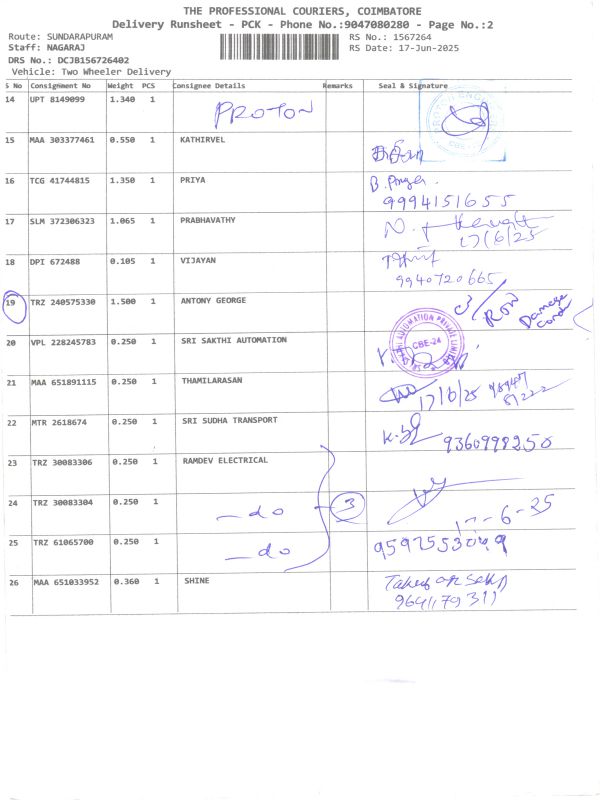 THE PROFESSIONAL COURIERS, COIMBATORE
Delivery Runsheet - PCK - Phone No.:9047080280 - Page No.:2
Route: SUNDARAPURAM RS No.: 1567264
Staff: NAGARAJ RS Date: 17-Jun-2025
DRS No.: DCJB156726402
Vehicle: Two Wheeler Delivery
S No Consignment No Weight PCS Consignee Details Remarks Seal & Signature
14 UPT 8149099 1.340 1 PROTON
15 MAA 303377461 0.550 1 KATHIRVEL
16 TCG 41744815 1.350 1 PRIYA B. Priya
9994151655
17 SLM 372306323 1.065 1 PRABHAVATHY
17/6/25
18 DPI 672488 0.105 1 VIJAYAN
9940720665
19 TRZ 240575330 1.500 1 ANTONY GEORGE Damage
20 VPL 228245783 0.250 1 SRI SAKTHI AUTOMATION AUTOMATION PRIVATE LIMITED
CBE-24
21 MAA 651891115 0.250 1 THAMILARASAN 17/6/25
22 MTR 2618674 0.250 1 SRI SUDHA TRANSPORT 9360998250
23 TRZ 30083306 0.250 1 RAMDEV ELECTRICAL
24 TRZ 30083304 0.250 1 -do 3 17-6-25
25 TRZ 61065700 0.250 1 -do
26 MAA 651033952 0.360 1 SHINE